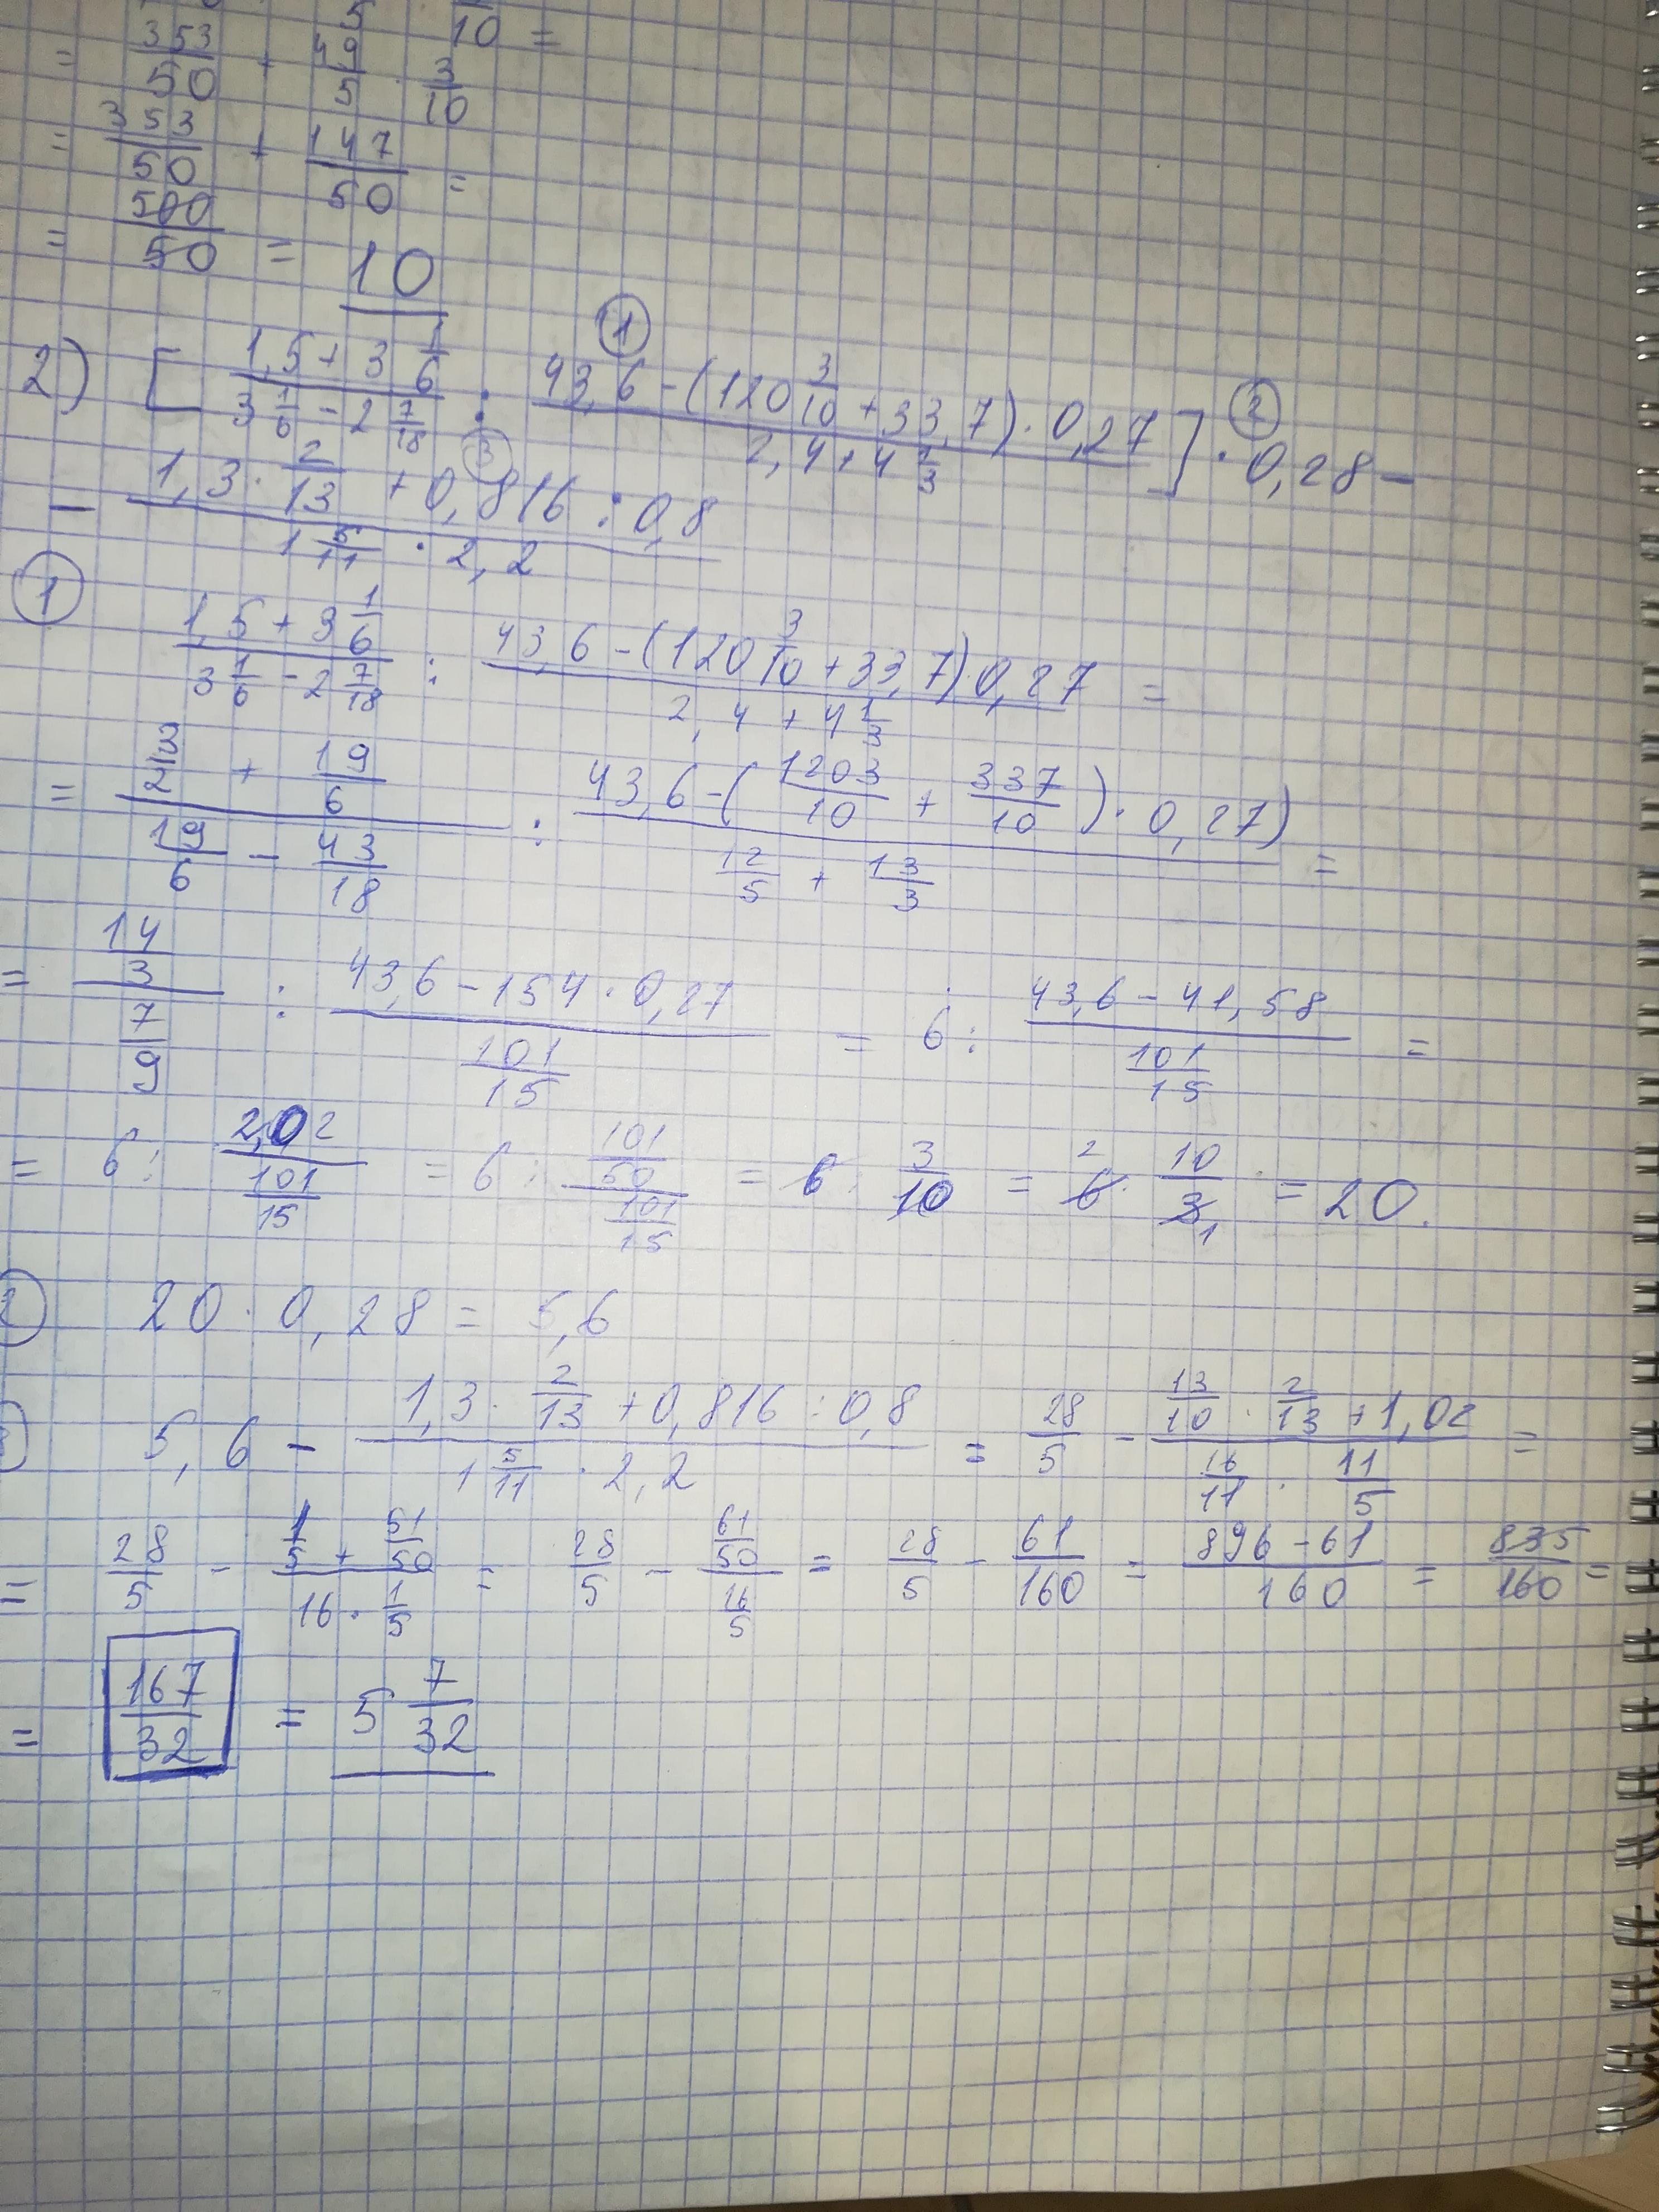 = 353/50 + 49/5 · 3/10 =
= 353/50 + 147/50 =
= 500/50 = 10
2) [ (1,5 + 3 1/6)/(3 1/6 - 2 7/18) : (43,6 - (120 3/10 + 33,7) · 0,27)/(2,4 + 4 1/3) ] · 0,28 -
- (1,3 · 2/13 + 0,816 : 0,8)/(1 5/11 · 2,2)
① (1,5 + 3 1/6)/(3 1/6 - 2 7/18) : (43,6 - (120 3/10 + 33,7) · 0,27)/(2,4 + 4 1/3) =
= (3/2 + 19/6)/(19/6 - 43/18) : (43,6 - (1203/10 + 337/10) · 0,27)/(12/5 + 13/3) =
= (14/3)/(7/9) : (43,6 - 154 · 0,27)/(101/15) = 6 : (43,6 - 41,58)/(101/15) =
= 6 : 2,02/(101/15) = 6 : (101/50)/(101/15) = 6 : 3/10 = 6 · 10/3 = 20.
② 20 · 0,28 = 5,6
5,6 - (1,3 · 2/13 + 0,816 : 0,8)/(1 5/11 · 2,2) = 28/5 - (13/10 · 2/13 + 1,02)/(16/11 · 11/5) =
= 28/5 - (1/5 + 51/50)/(16 · 1/5) = 28/5 - (61/50)/(16/5) = 28/5 - 61/160 = (896 - 61)/160 = 835/160 =
= 167/32 = 5 7/32